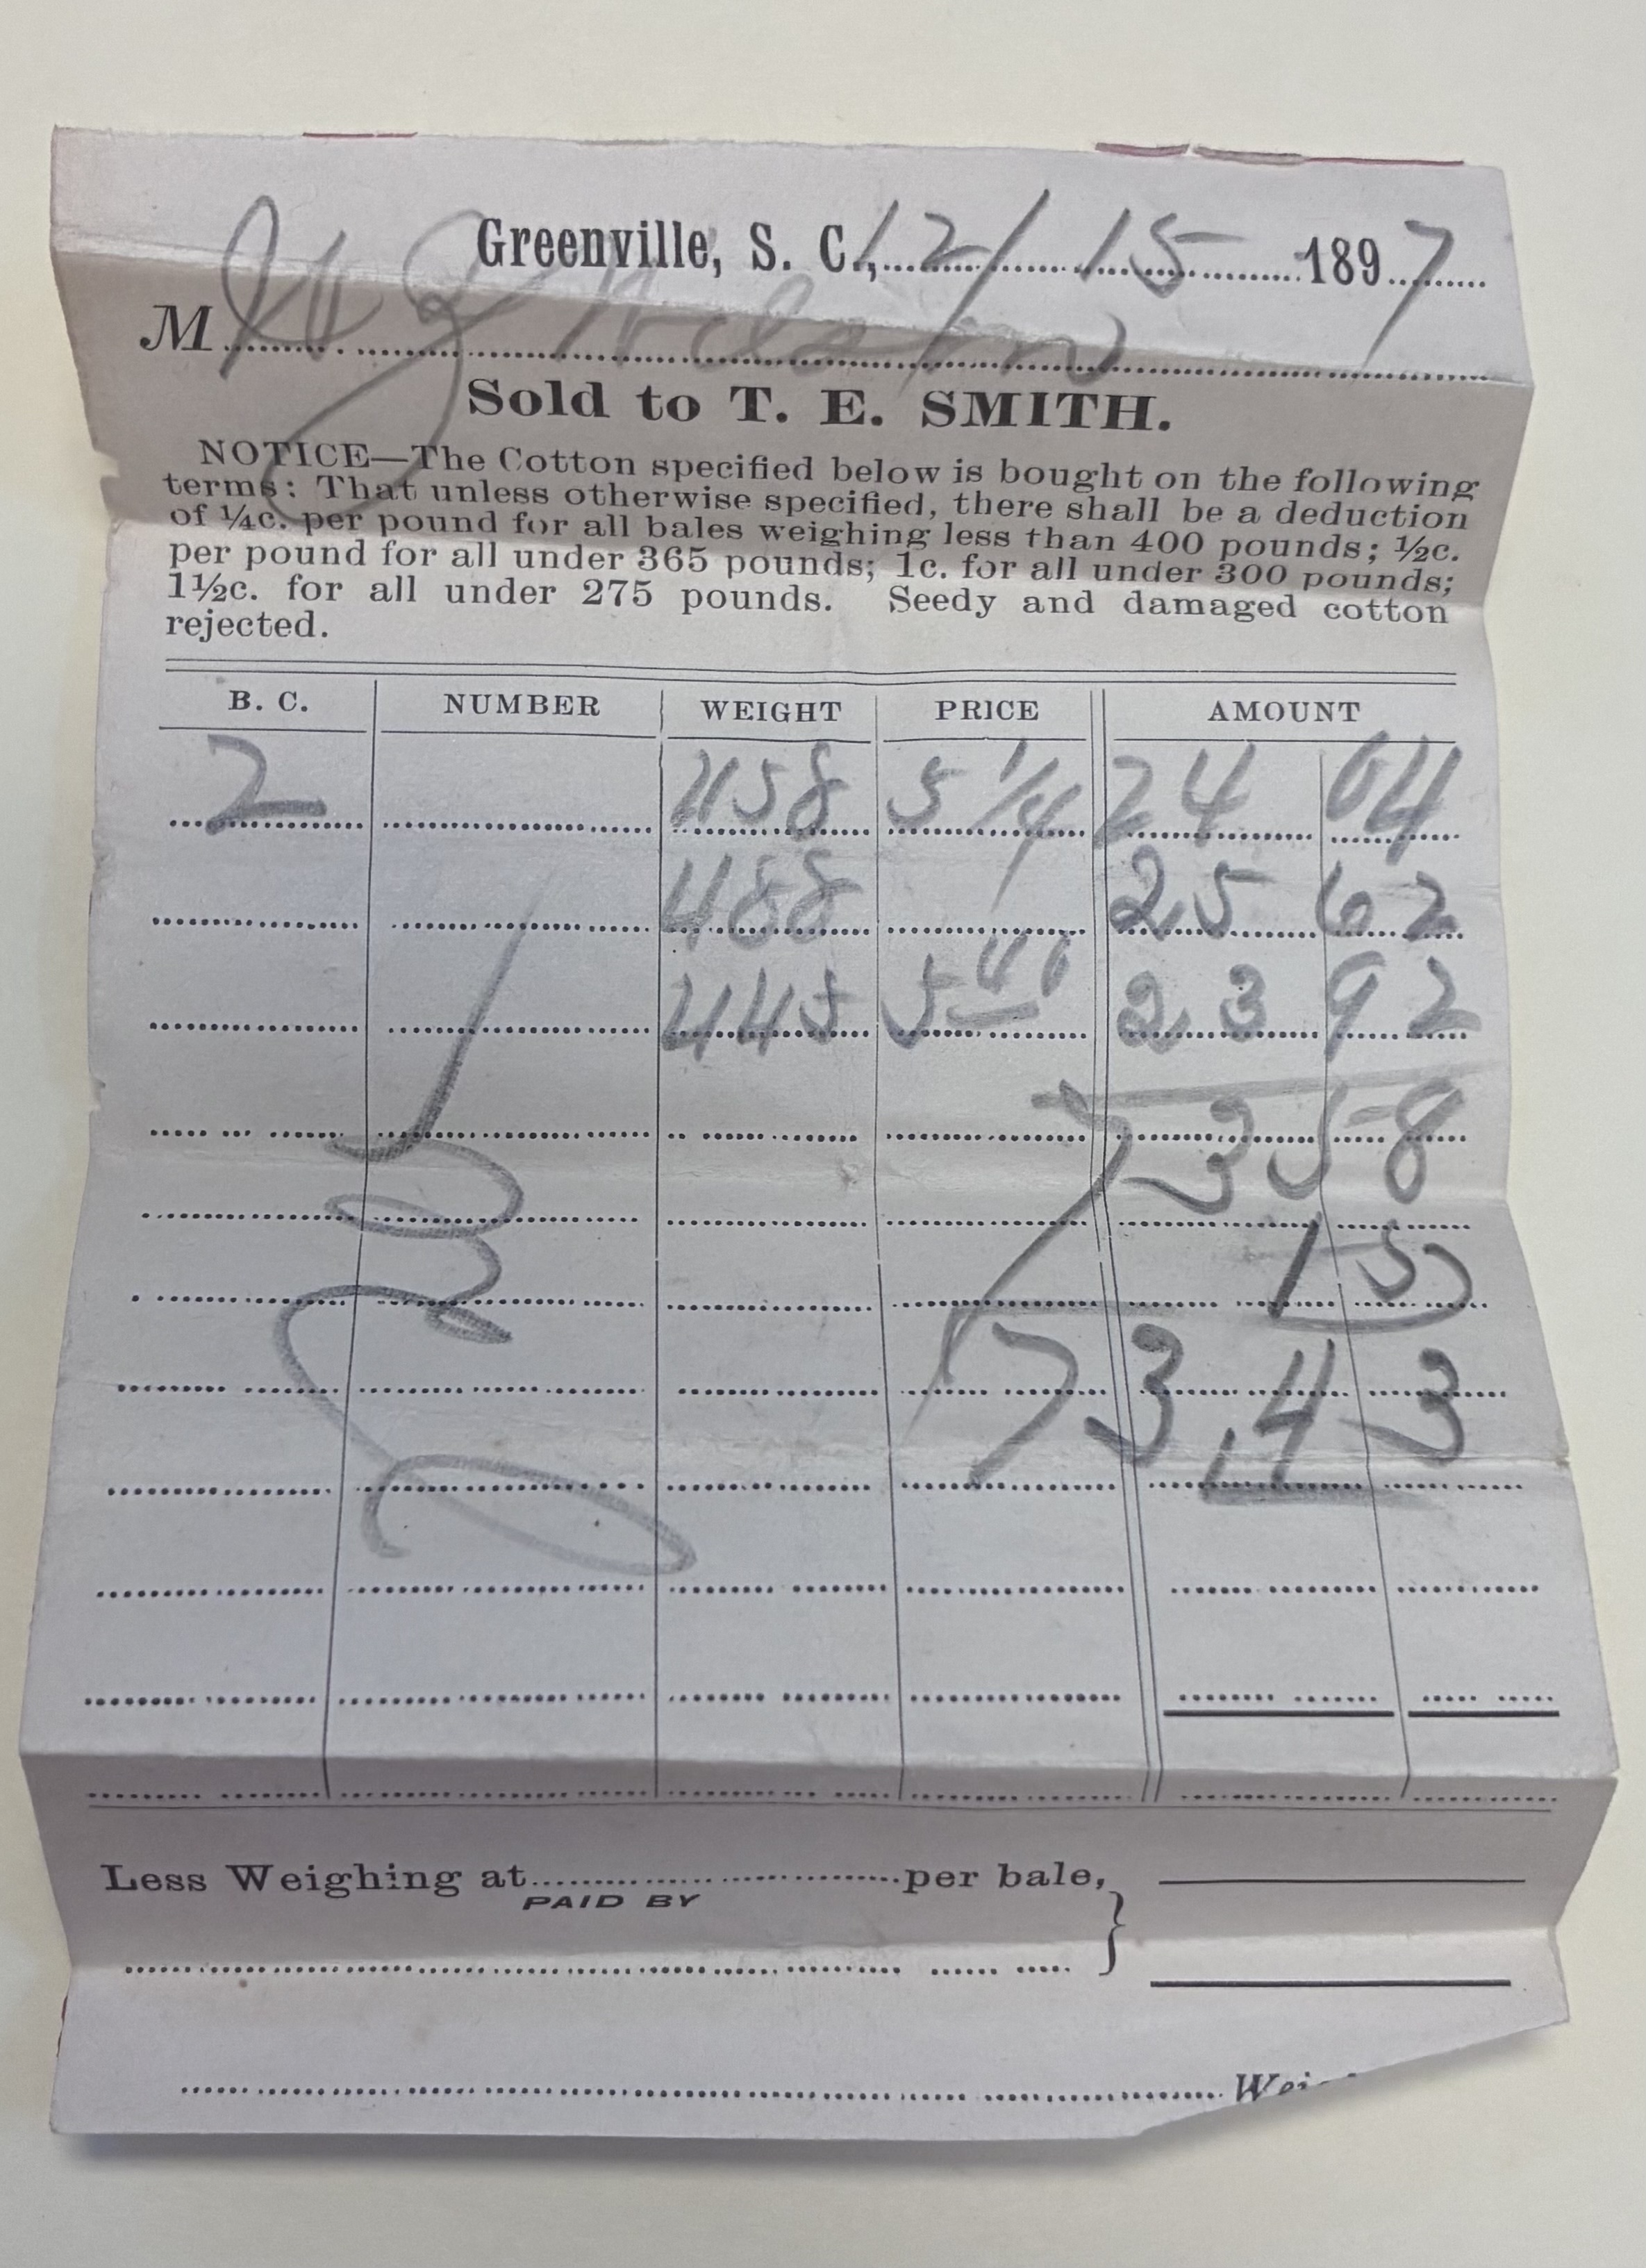 Greenville, S. C., 12/15 1897
M
Sold to T. E. SMITH.
NOTICE—The Cotton specified below is bought on the following
terms: That unless otherwise specified, there shall be a deduction
of ¼c. per pound for all bales weighing less than 400 pounds; ½c.
per pound for all under 365 pounds; 1c. for all under 300 pounds;
1½c. for all under 275 pounds. Seedy and damaged cotton
rejected.
B. C. NUMBER WEIGHT PRICE AMOUNT
2 458 5 1/4 24 04
488 25 62
443 5 40 23 92
73 58
15
73.43
Less Weighing at per bale,
PAID BY